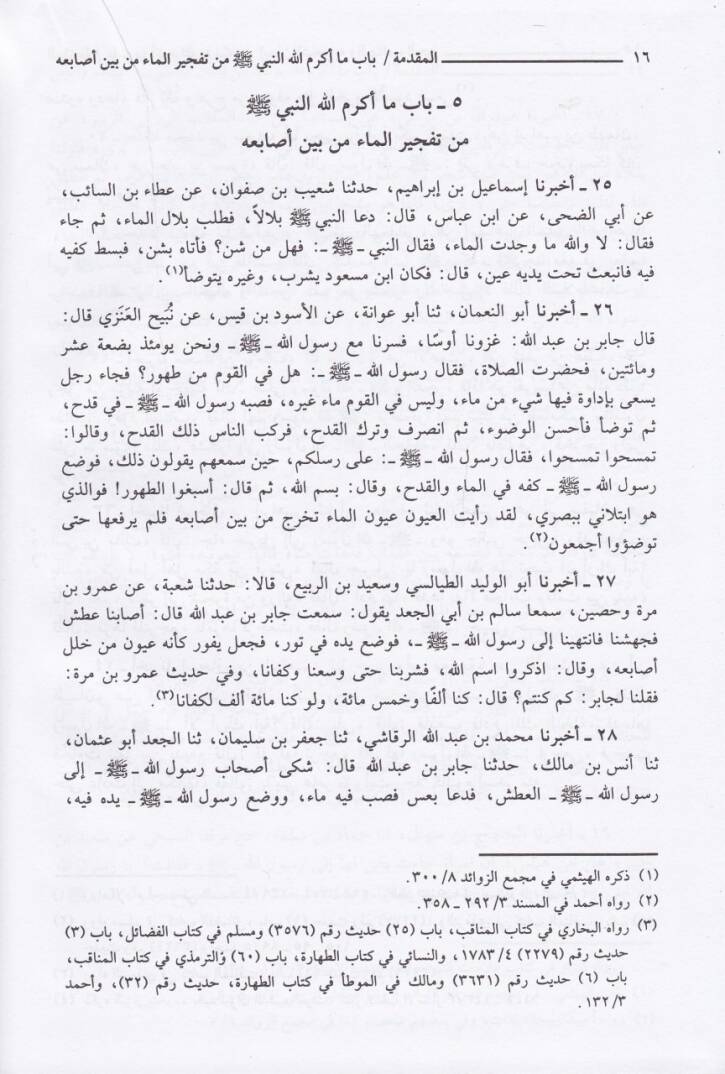 ١٦ المقدمة / باب ما أكرم الله النبي ﷺ من تفجير الماء من بين أصابعه
٥ ـ باب ما أكرم الله النبي ﷺ
من تفجير الماء من بين أصابعه
٢٥ ـ أخبرنا إسماعيل بن إبراهيم، حدثنا شعيب بن صفوان، عن عطاء بن السائب،
عن أبي الضحى، عن ابن عباس، قال: دعا النبي ﷺ بلالاً، فطلب بلال الماء، ثم جاء
فقال: لا والله ما وجدت الماء، فقال النبي ـ ﷺ ـ: فهل من شن؟ فأتاه بشن، فبسط كفيه
فيه فانبعث تحت يديه عين، قال: فكان ابن مسعود يشرب، وغيره يتوضأ(١).
٢٦ ـ أخبرنا أبو النعمان، ثنا أبو عوانة، عن الأسود بن قيس، عن نُبَيح العَنَزي قال:
قال جابر بن عبد الله: غزونا أوسًا، فسرنا مع رسول الله ـ ﷺ ـ ونحن يومئذ بضعة عشر
ومائتين، فحضرت الصلاة، فقال رسول الله ـ ﷺ ـ: هل في القوم من طهور؟ فجاء رجل
يسعى بإداوة فيها شيء من ماء، وليس في القوم ماء غيره، فصبه رسول الله ـ ﷺ ـ في قدح،
ثم توضأ فأحسن الوضوء، ثم انصرف وترك القدح، فركب الناس ذلك القدح، وقالوا:
تمسحوا تمسحوا، فقال رسول الله ـ ﷺ ـ: على رسلكم، حين سمعهم يقولون ذلك، فوضع
رسول الله ـ ﷺ ـ كفه في الماء والقدح، وقال: بسم الله، ثم قال: أسبغوا الطهور! فوالذي
هو ابتلاني ببصري، لقد رأيت العيون عيون الماء تخرج من بين أصابعه فلم يرفعها حتى
توضؤوا أجمعون(٢).
٢٧ ـ أخبرنا أبو الوليد الطيالسي وسعيد بن الربيع، قالا: حدثنا شعبة، عن عمرو بن
مرة وحصين، سمعا سالم بن أبي الجعد يقول: سمعت جابر بن عبد الله قال: أصابنا عطش
فجهشنا فانتهينا إلى رسول الله ـ ﷺ ـ، فوضع يده في تور، فجعل يفور كأنه عيون من خلل
أصابعه، وقال: اذكروا اسم الله، فشربنا حتى وسعنا وكفانا، وفي حديث عمرو بن مرة:
فقلنا لجابر: كم كنتم؟ قال: كنا ألفًا وخمس مائة، ولو كنا مائة ألف لكفانا(٣).
٢٨ ـ أخبرنا محمد بن عبد الله الرقاشي، ثنا جعفر بن سليمان، ثنا الجعد أبو عثمان،
ثنا أنس بن مالك، حدثنا جابر بن عبد الله قال: شكى أصحاب رسول الله ـ ﷺ ـ إلى
رسول الله ـ ﷺ ـ العطش، فدعا بعس فصب فيه ماء، ووضع رسول الله ـ ﷺ ـ يده فيه،
(١) ذكره الهيثمي في مجمع الزوائد ٨/ ٣٠٠.
(٢) رواه أحمد في المسند ٣/ ٢٩٢ ـ ٣٥٨.
(٣) رواه البخاري في كتاب المناقب، باب (٢٥) حديث رقم (٣٥٧٦) ومسلم في كتاب الفضائل، باب (٣)
حديث رقم (٢٢٧٩) ٤/ ١٧٨٣، والنسائي في كتاب الطهارة، باب (٦٠) والترمذي في كتاب المناقب،
باب (٦) حديث رقم (٣٦٣١) ومالك في الموطأ في كتاب الطهارة، حديث رقم (٣٢)، وأحمد
٣/ ١٣٢.